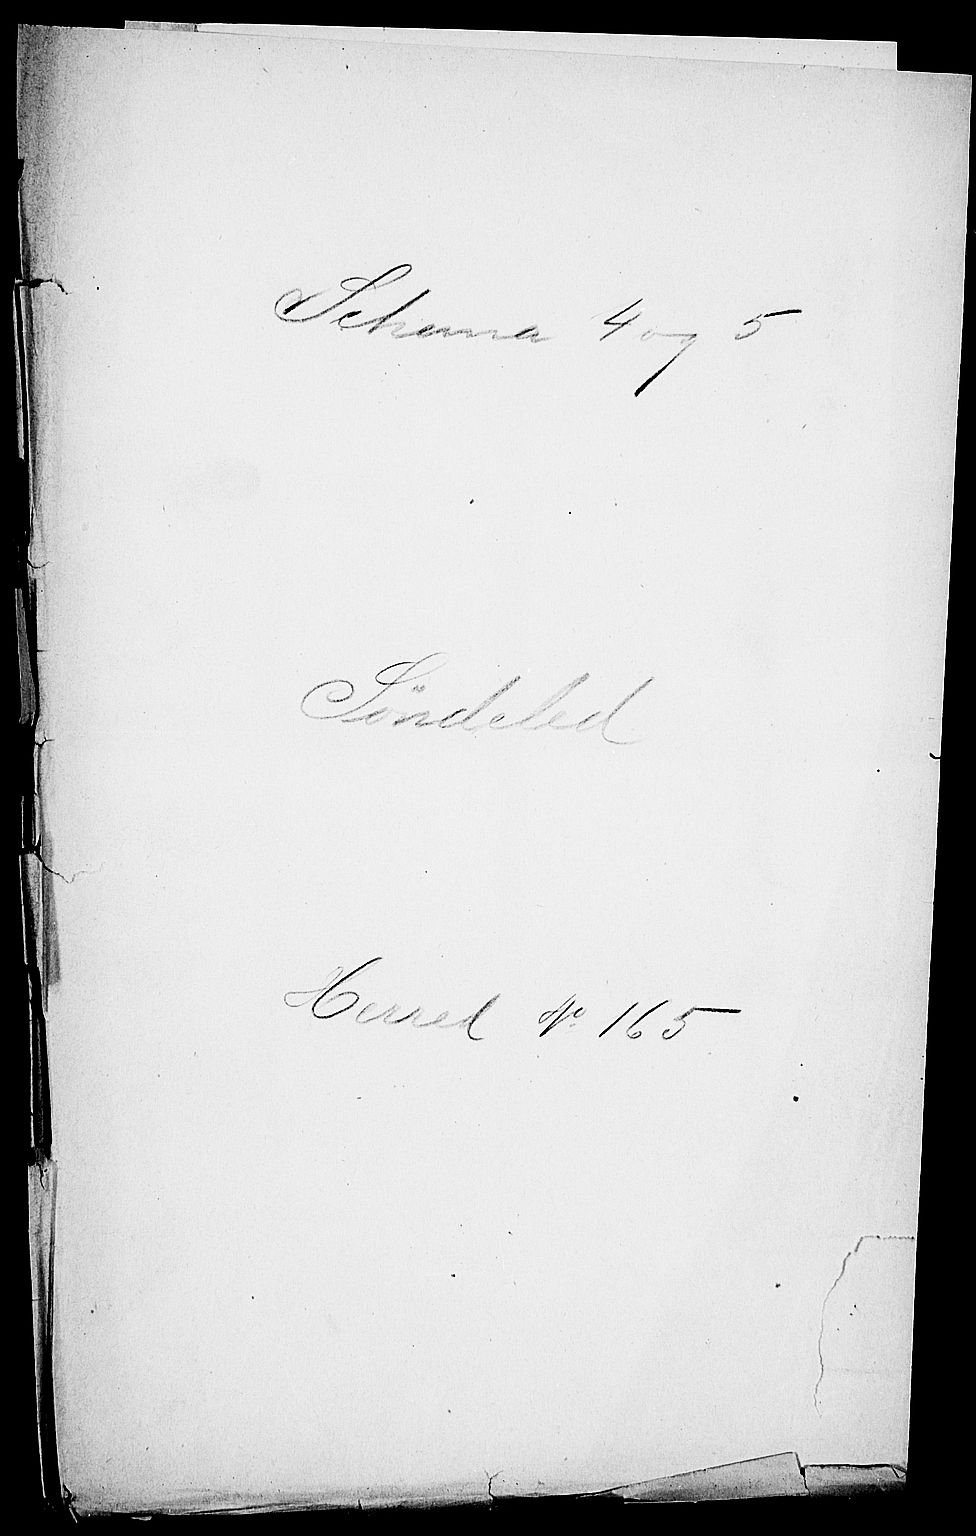 Schema 4 og 5
Söndeled
Herred No 165